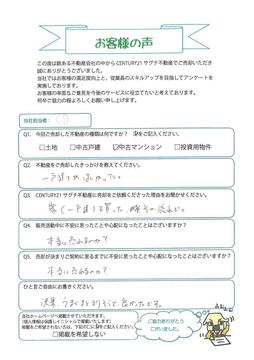 お客様の声
この度は数ある不動産会社の中から CENTURY21 サグチ不動産でご売却いただき
誠にありがとうございました。
当社ではお客様の満足度向上と、従業員のスキルアップを目指してアンケートを
実施しております。
お客様の率直なご意見を今後のサービスに役立てたいと考えております。
何卒ご協力の程よろしくお願い申し上げます。
当社担当者:
Q1. 今回ご売却した不動産の種類は何ですか?をご記入ください。
□土地 □中古戸建 ☑中古マンション □投資用物件
Q2. 不動産をご売却したきっかけを教えてください。
一戸建てがほしかった。
Q3. CENTURY21 サグチ不動産にご売却をご依頼くださった理由をお聞かせください。
家(一戸建)を買った
Q4. 販売活動中に不安に思ったことや心配になったことはありますか?
本当に売れるのか?
Q5. 売却が決まりご契約に至るまでに不安に思ったことや心配になったことはありますか?
本当に売れるのか?
ひと言ご自由にお書きください。
決果、うまくまとまりそうで良かったです。
当社ホームページへ掲載させていただきます。
(個人情報は保護しイニシャルで掲載いたします)
掲載をご希望されない方は、下記の□にをご記入ください。
□掲載を希望しない
ご協力ありがとう
ございました。